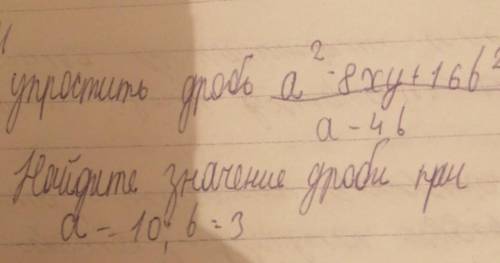 упростить дробь a² - 8xy + 16b²
a - 4b
Найдите значение дроби при
a = 10; b = 3